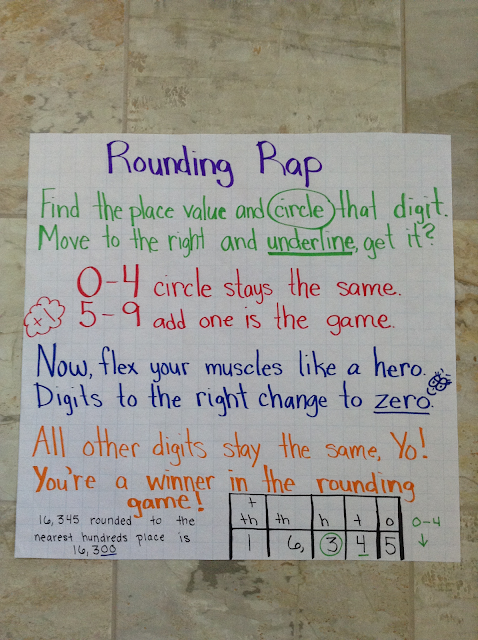 Rounding Rap
Find the place value and circle that digit.
Move to the right and underline, get it?
0-4 circle stays the same.
+1 5-9 add one is the game.
Now, flex your muscles like a hero.
Digits to the right change to zero.
All other digits stay the same, Yo!
You're a winner in the rounding
game!
16,345 rounded to the
nearest hundreds place is
16,300
t
th th h t o 0-4
1 6, 3 4 5 ↓